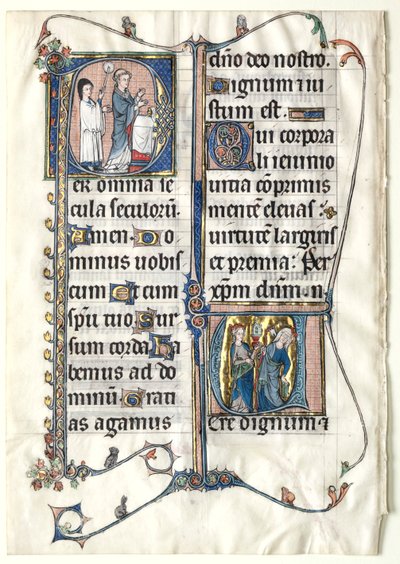 er omnia se
cula seculorū.
Amen. Do
minus uobis
cum Et cum
spū tuo Sur
sum corda ha
bemus ad do
minū Grati
as agamus
dño deo nostro.
Dignum ⁊ iu
stum est.
Qui corpora
li ieiunio
uitia cōprimis
mentē eleuas:
uirtutē largiris
et premia: Per
xp̄m dn̄um n
ere dignum ⁊